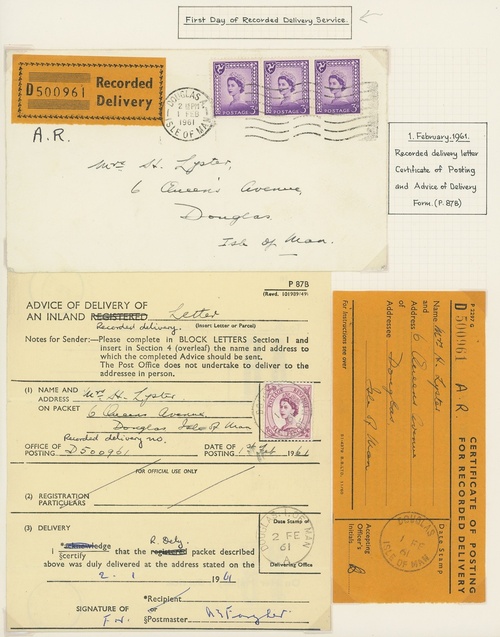 First Day of Recorded Delivery Service.
D500961
Recorded
Delivery
A.R.
DOUGLAS
2 PM
1 FEB
1961
ISLE OF MAN
POSTAGE 3D
POSTAGE 3D
POSTAGE 3D
Mrs H. Lyster,
6 Queen's Avenue,
Douglas
Isle of Man.
1. February. 1961.
Recorded delivery letter
Certificate of Posting
and Advice of Delivery
Form. (P. 87B)
P 87B
ADVICE OF DELIVERY OF
AN INLAND REGISTERED Letter
Recorded delivery. (Insert Letter or Parcel)
Notes for Sender:—Please complete in BLOCK LETTERS Section 1 and
insert in Section 4 (overleaf) the name and address to
which the completed Advice should be sent.
The Post Office does not undertake to deliver to the
addressee in person.
(1) NAME AND
ADDRESS
ON PACKET
Mrs H. Lyster
6 Queens Avenue,
Douglas Isle of Man
Recorded delivery no.
OFFICE OF
POSTING D500961
DATE OF
POSTING 1st Feb 1961
FOR OFFICIAL USE ONLY
(2) REGISTRATION
PARTICULARS
(3) DELIVERY
DOUGLAS ISLE OF MAN
2 FE
61
A
Date Stamp of
Delivering Office
I *acknowledge
§certify that the registered R. Dely. packet described
above was duly delivered at the address stated on the
2. 1 1961
SIGNATURE OF
*Recipient
§Postmaster
For
P 2297 G
D500961 A.R.
CERTIFICATE OF POSTING
FOR RECORDED DELIVERY
Name
and
Address
of
Addressee
Mrs H. Lyster
6 Queens Avenue
Douglas
Isle of Man
For Instructions see over
Date Stamp
DOUGLAS
1 FE
61
ISLE OF MAN
Accepting
Officer's
Initials